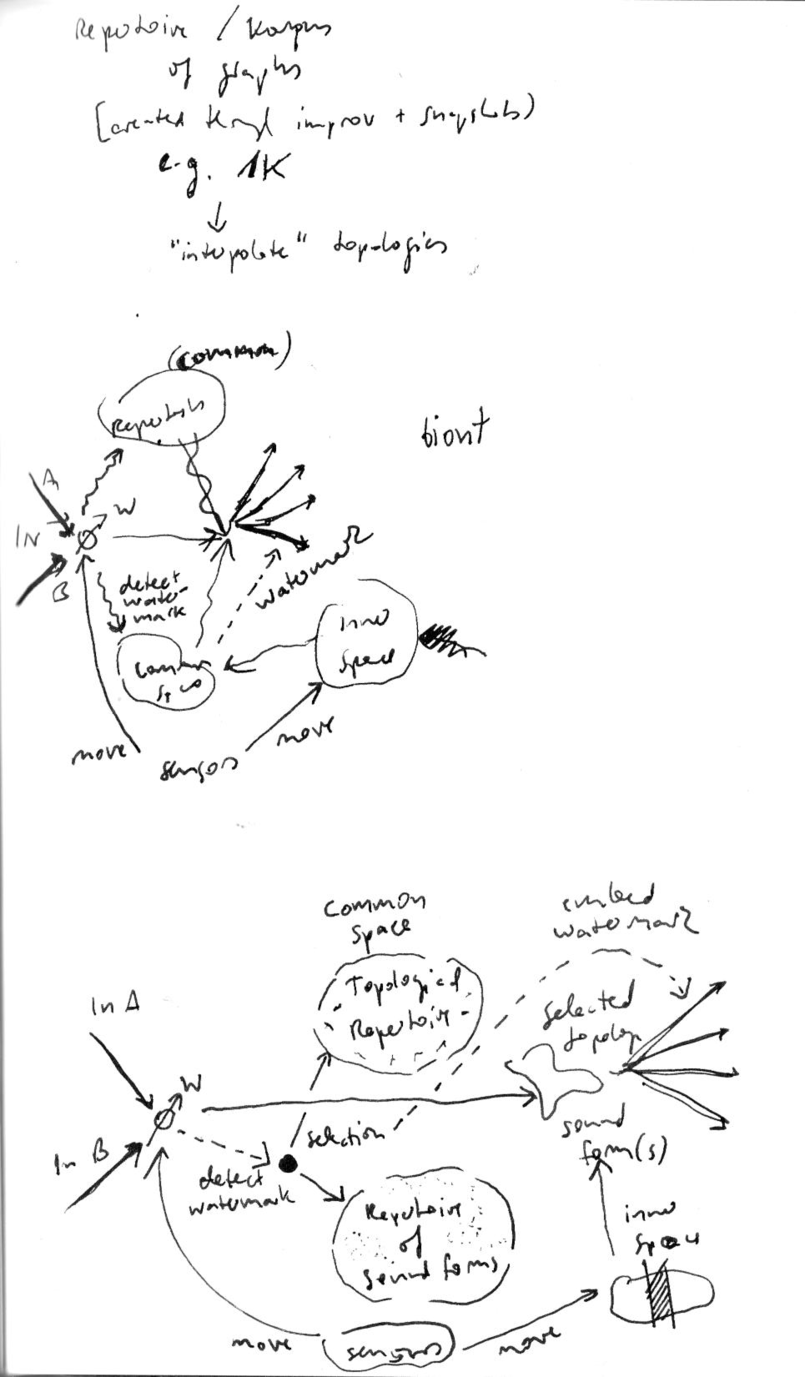 Repertoire / Korpus
of graphs
[created through improv + snapshots)
e.g. 1K
"interpolate" topologies
(common)
biont
A
W
IN
B
detect
water-
mark
watermark
inner
space
move
sensors
move
common
space
embed
watermark
Topological
Repertoire
selected
topology
In A
W
selection
sound
form(s)
In B
detect
watermark
Repertoire
of
sound forms
inner
space
move
sensors
move